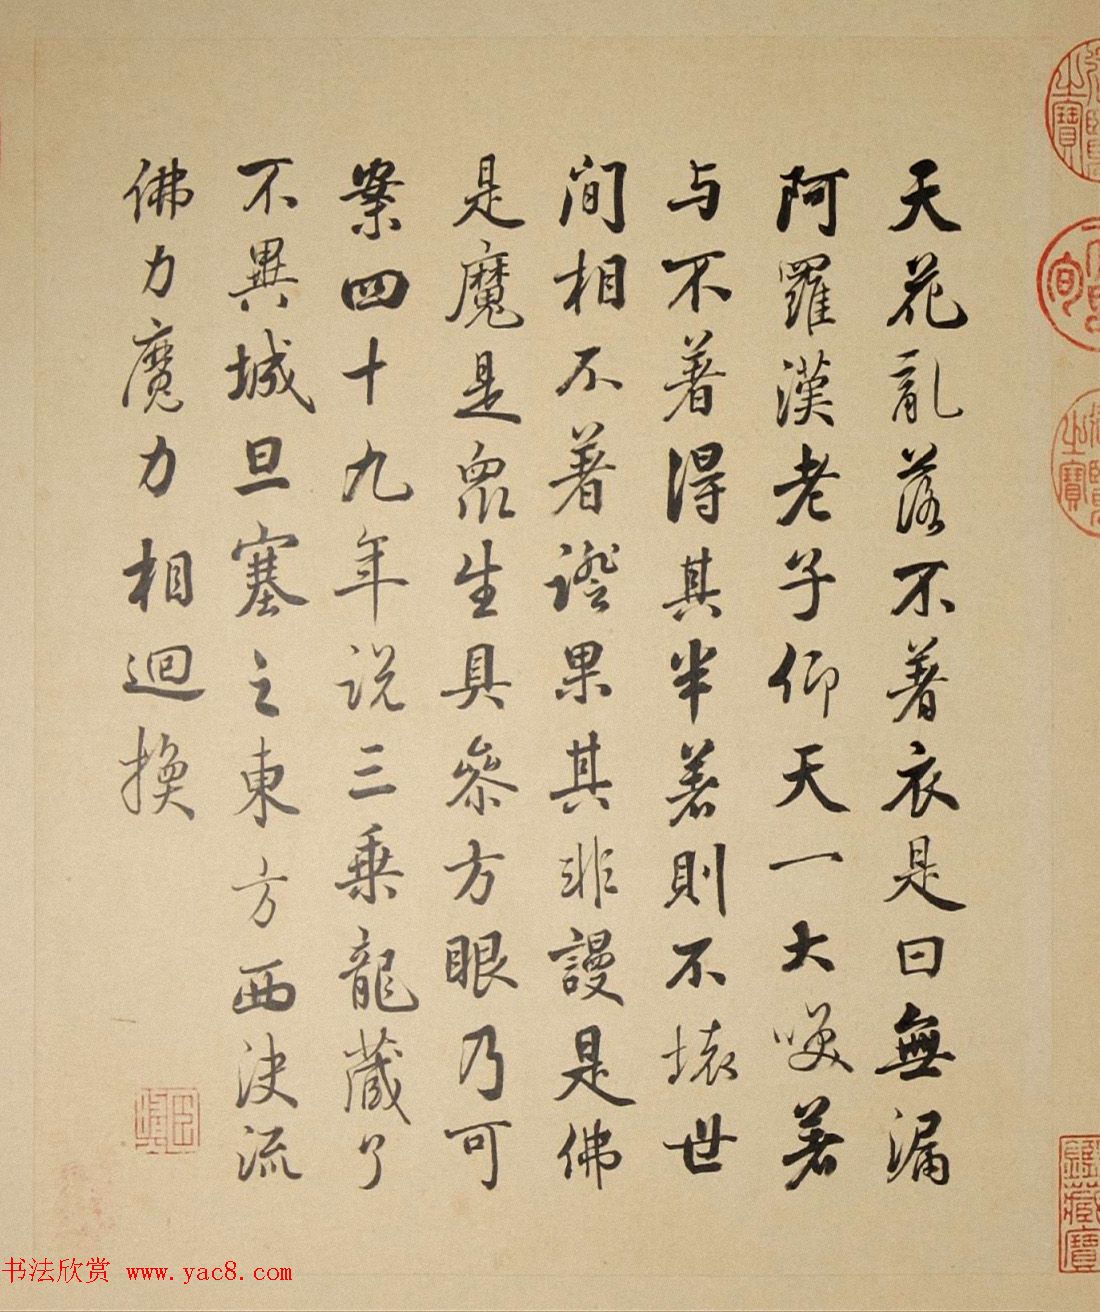 天花亂落不著衣是曰無漏
阿羅漢老子仰天一大咲著
与不著得其半著則不壞世
間相不著證果其非謾是佛
是魔是眾生具參方眼乃可
案四十九年说三乘龍藏了
不異城旦塞之東方西決流
佛力魔力相迴換
鑑藏寶
书法欣赏 www.yac8.com